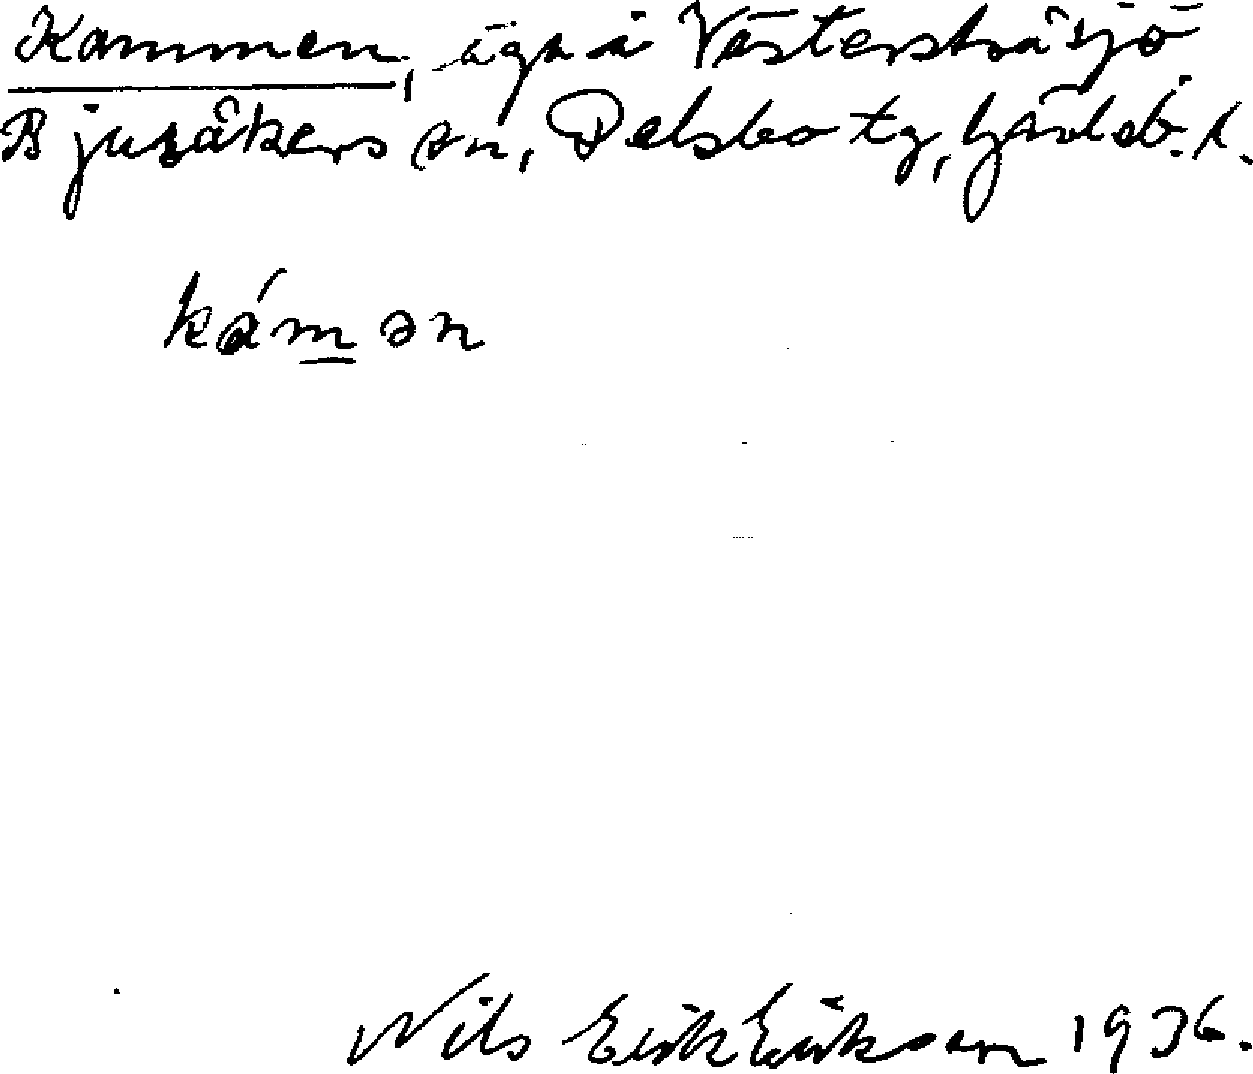 Kammen, äga i Västerstråsjö
Bjuråkers sn, Delsbo tg, Gävleb. l.
kámən
Nils Erik Eriksson 1936.